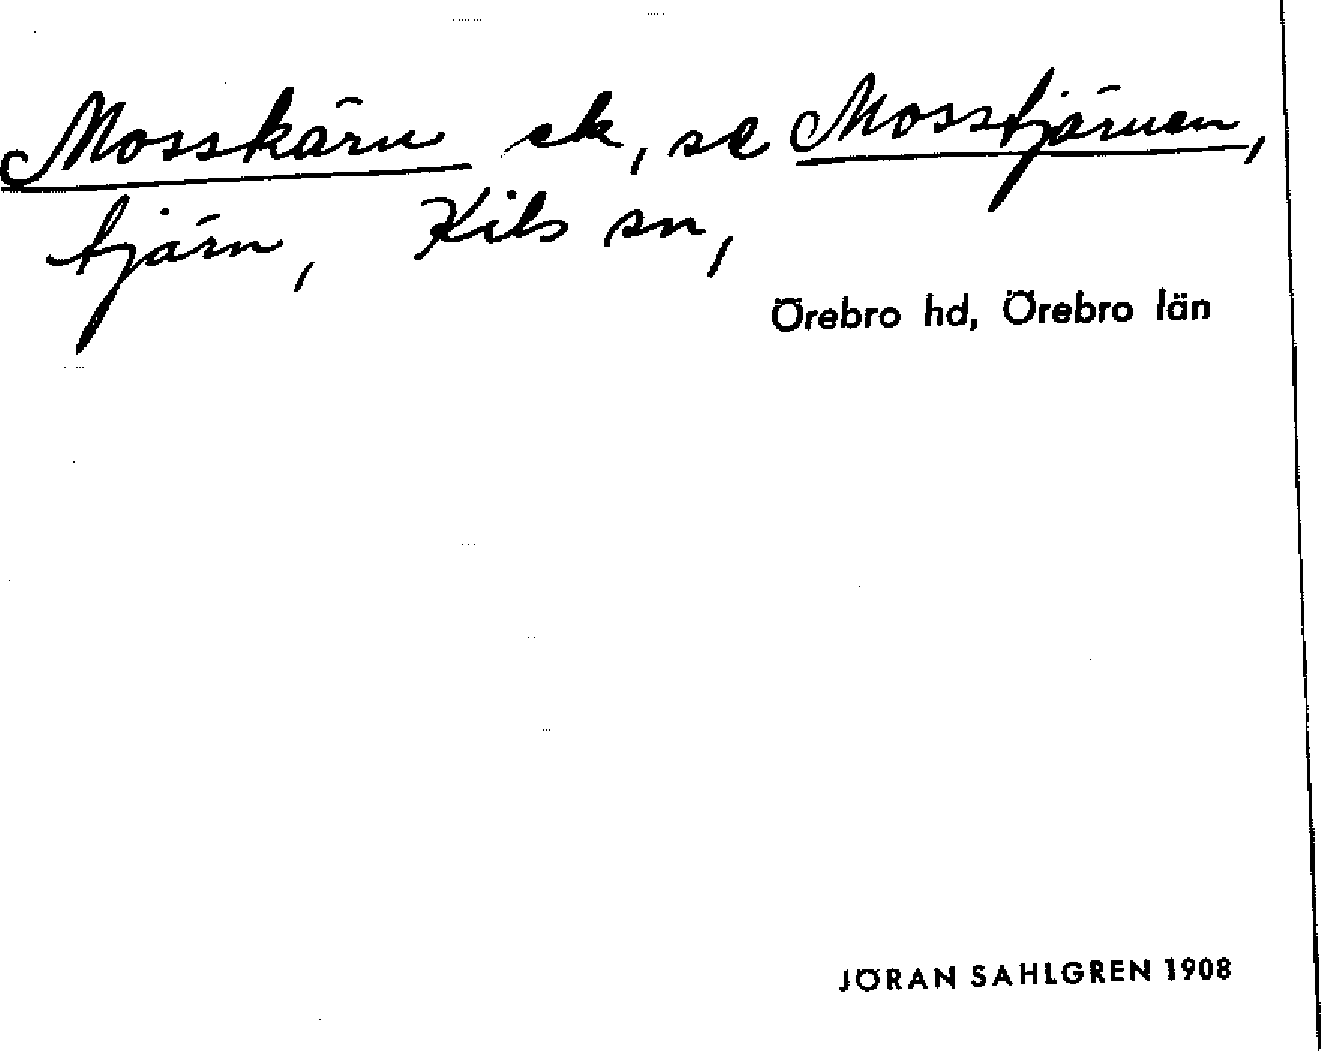 Mosskärn ek, se Mosstjärnen,
tjärn, Kils sn,
Örebro hd, Örebro län
JÖRAN SAHLGREN 1908